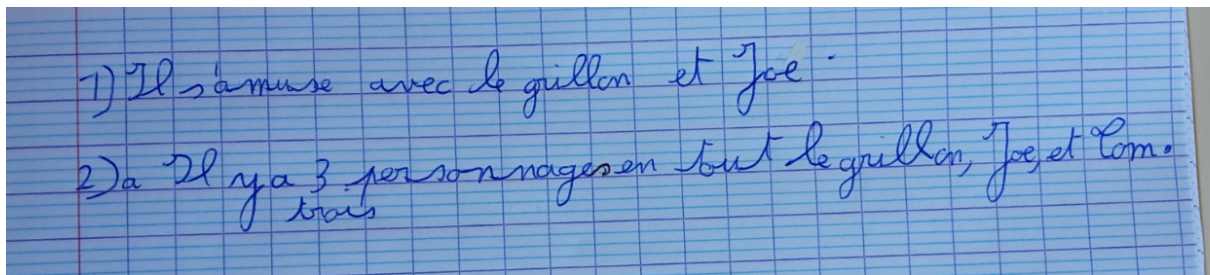 1) Il s'amuse avec le grillon et Joe.
2) a Il y a 3 personnages en tout le grillon, Joe, et Tom.
trois